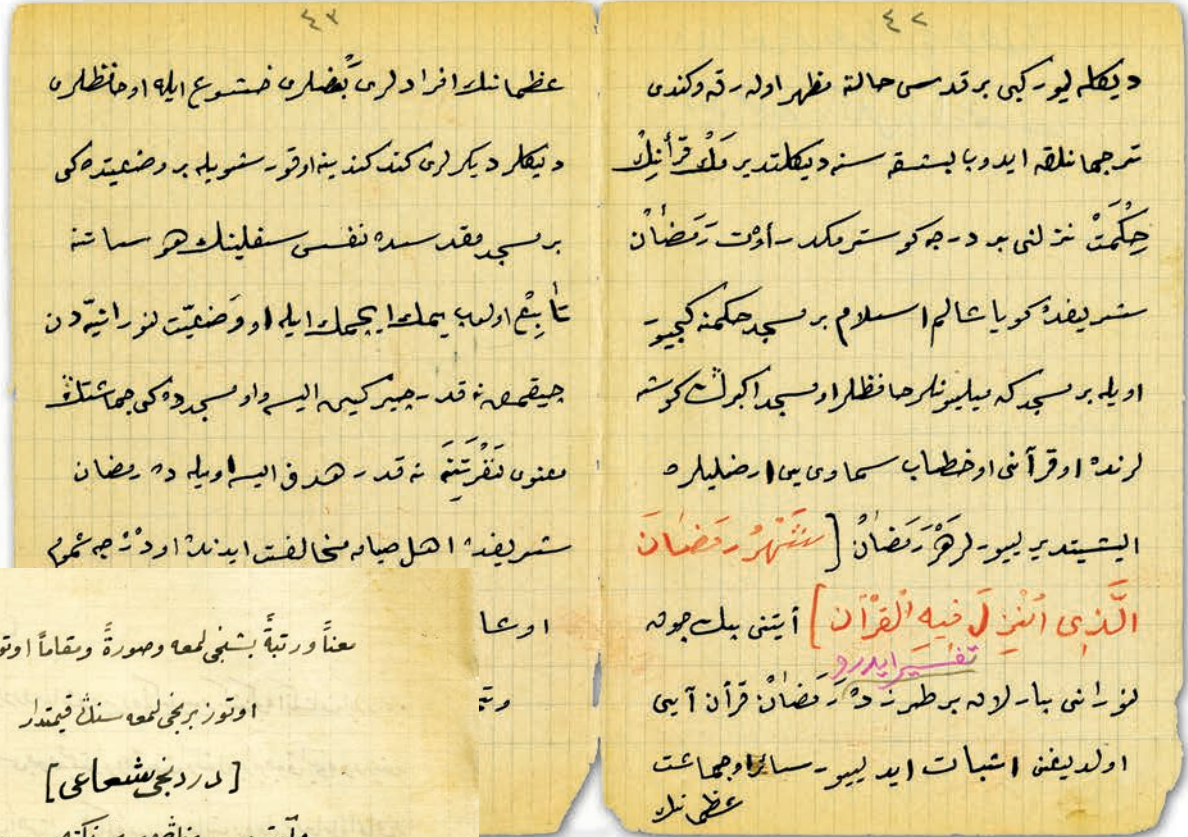 ٤٢
ديكله ليور كبى بر قدسى حالته مظهر اوله رق و كندى
ترجمانلقه ايدوب باشقه سنه ديكلتديرمك قرآنِڭ
حِكْمَتْ نزلنى بر درجه كوسترمكدر أوت رَمَضَانْ
شريفده كويا عالم اسلام بر مسجد حكمنه كچيور
اويله بر مسجد كه ميليونلر حافظلر او مسجد اكبرڭ كوشه
لرنده او قرآنى او خطاب سماوى يى ارضليلره
ايشيتديرييورلر هَرْ رَمَضَانْ [شَهْرُ رَمَضَانَ
الَّذِى اُنْزِلَ فِيهِ الْقُرْآن] آيتنى پك چوق
تفسير ايدرو
نورانى پارلاق بر طرزده رَمَضَانْ قرآن آيى
اولديغنى اثبات ايدييور سائر او جماعت
عظمى نك
٤٣
عظمانك افرادلرى بَعْضلرى خشوع ايله او حافظلرى
ديكلر ديكرلرى كندى كندينه اوقور شويله بر وضعيتده كى
بر مسجد مقدسده نفس سفلينك هوساتنه
تَابِعْ اولوب يمك ايچمك ايله او وَضْعِيّت نورانيّه دن
چيقمق نه قدر چيركين ايسه و او مسجدده كى جماعتڭ
معنوى نَفْرَتِنَه نه قدر هدف ايسه اويله ده رمضان
شريفده اهل صيامه مخالفت ايدنده او دَرَجه عموم
او عا
معناً و رتبةً بشنجى لمعه وصورةً ومقاماً اوتو
اوتوز برنجى لمعه سنڭ قيمتدار
[دردنجى شعاعى]